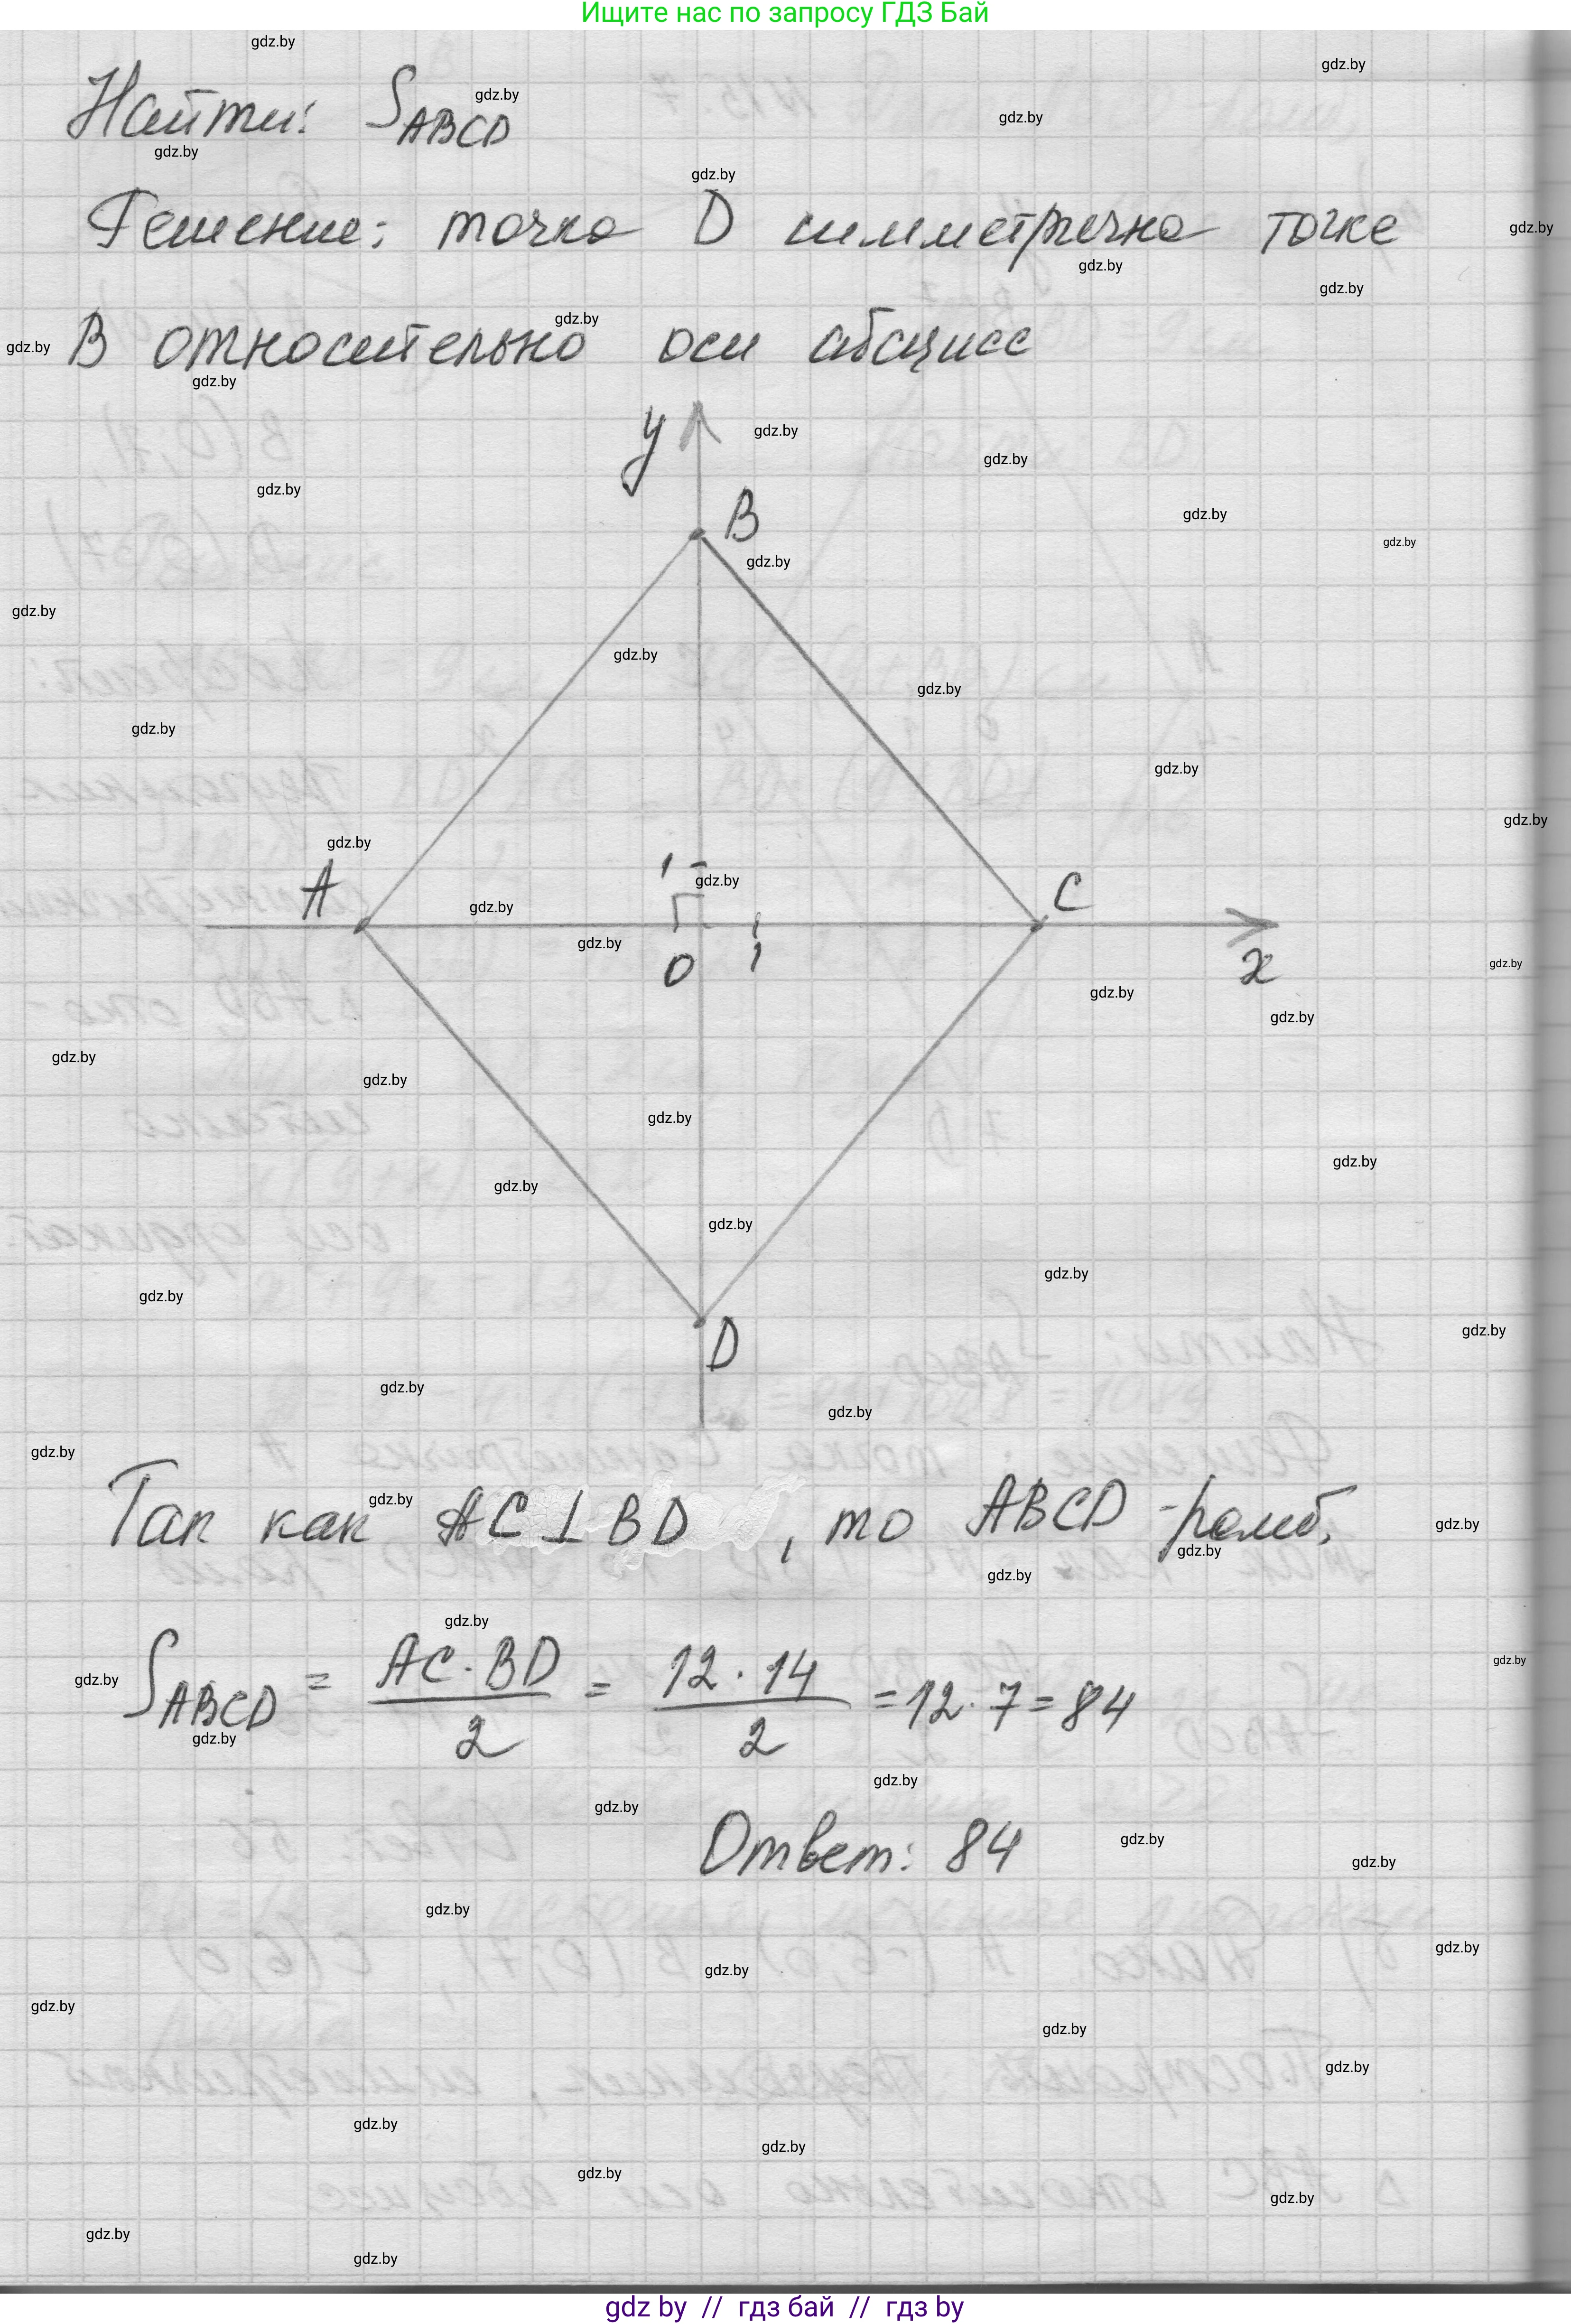 Ищите нас по запросу ГДЗ Бай
Найти: S_ABCD
Решение: точка D симметрична точке
B относительно оси абсцисс
y
B
A
1
C
0
1
x
D
Так как AC ⊥ BD, то ABCD - ромб,
S_ABCD = AC · BD / 2 = 12 · 14 / 2 = 12 · 7 = 84
Ответ: 84
gdz by // гдз бай // гдз by